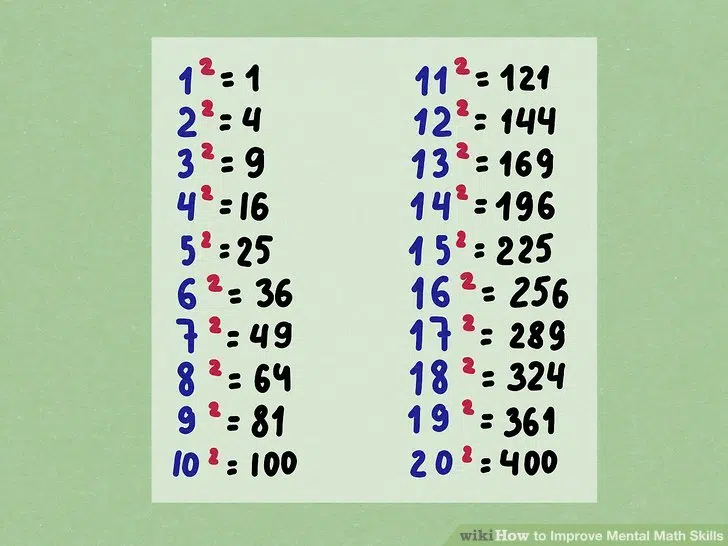 1² = 1
2² = 4
3² = 9
4² = 16
5² = 25
6² = 36
7² = 49
8² = 64
9² = 81
10² = 100
11² = 121
12² = 144
13² = 169
14² = 196
15² = 225
16² = 256
17² = 289
18² = 324
19² = 361
20² = 400
wikiHow to Improve Mental Math Skills